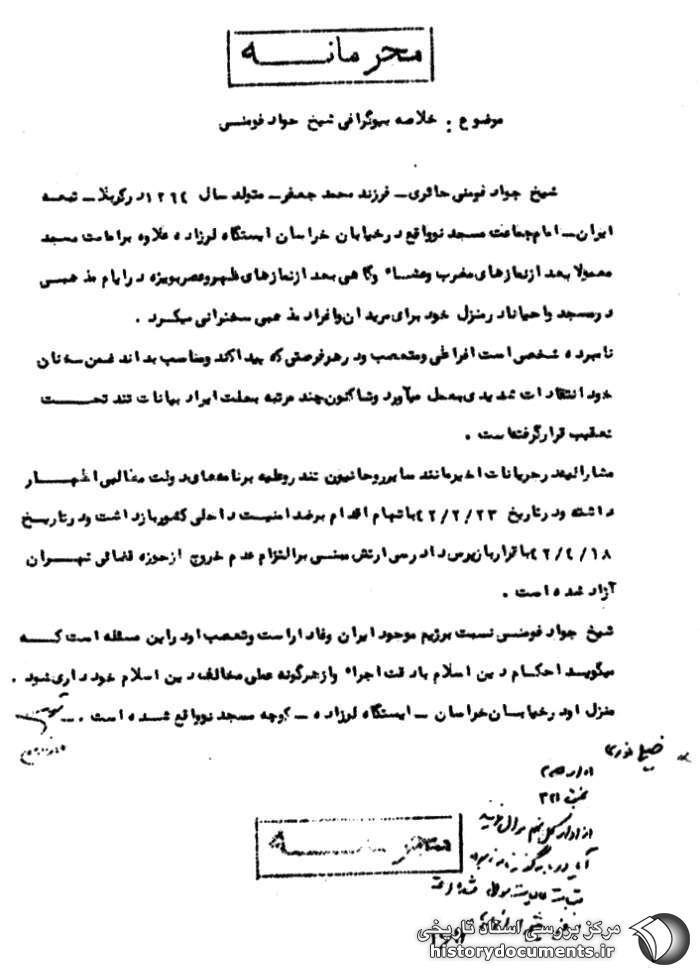 محرمانه
موضوع : خلاصه بیوگرافی شیخ جواد فومنی
شیخ جواد فومنی حائری ـ فرزند محمد جعفر ـ متولد سال ۱۲۹۴ در کربلا ـ تبعه
ایران ـ امام جماعت مسجد نو واقع در خیابان خراسان ایستگاه لرزاده علاوه بر امامت مسجد
معمولا بعد از نمازهای مغرب و عشاء و گاهی بعد از نمازهای ظهر و عصر بویژه در ایام مذهبی
در مسجد و احیانا در منزل خود برای مریدان و افراد مذهبی سخنرانی میکرد .
نامبرده شخصی است افراطی و متعصب و در هر فرصتی که پیدا کند و مناسب بداند ضمن سخنان
خود انتقادات شدیدی بعمل میآورد و تاکنون چند مرتبه بعلت ایراد بیانات تند تحت
تعقیب قرار گرفته است .
مشارالیه در جریانات اخیر مانند سایر روحانیون تند رو علیه برنامه‌های دولت مطالبی اظهار
داشته و در تاریخ ۴۲/۲/۲۳ باتهام اقدام بر ضد امنیت داخلی کشور بازداشت و در تاریخ
۴۲/۴/۱۸ با قرار بازپرس دادرسی ارتش مبنی بر التزام عدم خروج از حوزه قضائی تهران
آزاد شده است .
شیخ جواد فومنی نسبت برژیم موجود ایران وفادار است و تعصب او در این مسئله است که
میگوید احکام دین اسلام با دقت اجراء و از هرگونه عملی مخالف دین اسلام خودداری شود .
منزل او در خیابان خراسان ـ ایستگاه لرزاده ـ کوچه مسجد نو واقع شده است .
۳۲۱
محرمانه
مرکز بررسی اسناد تاریخی
historydocuments.ir